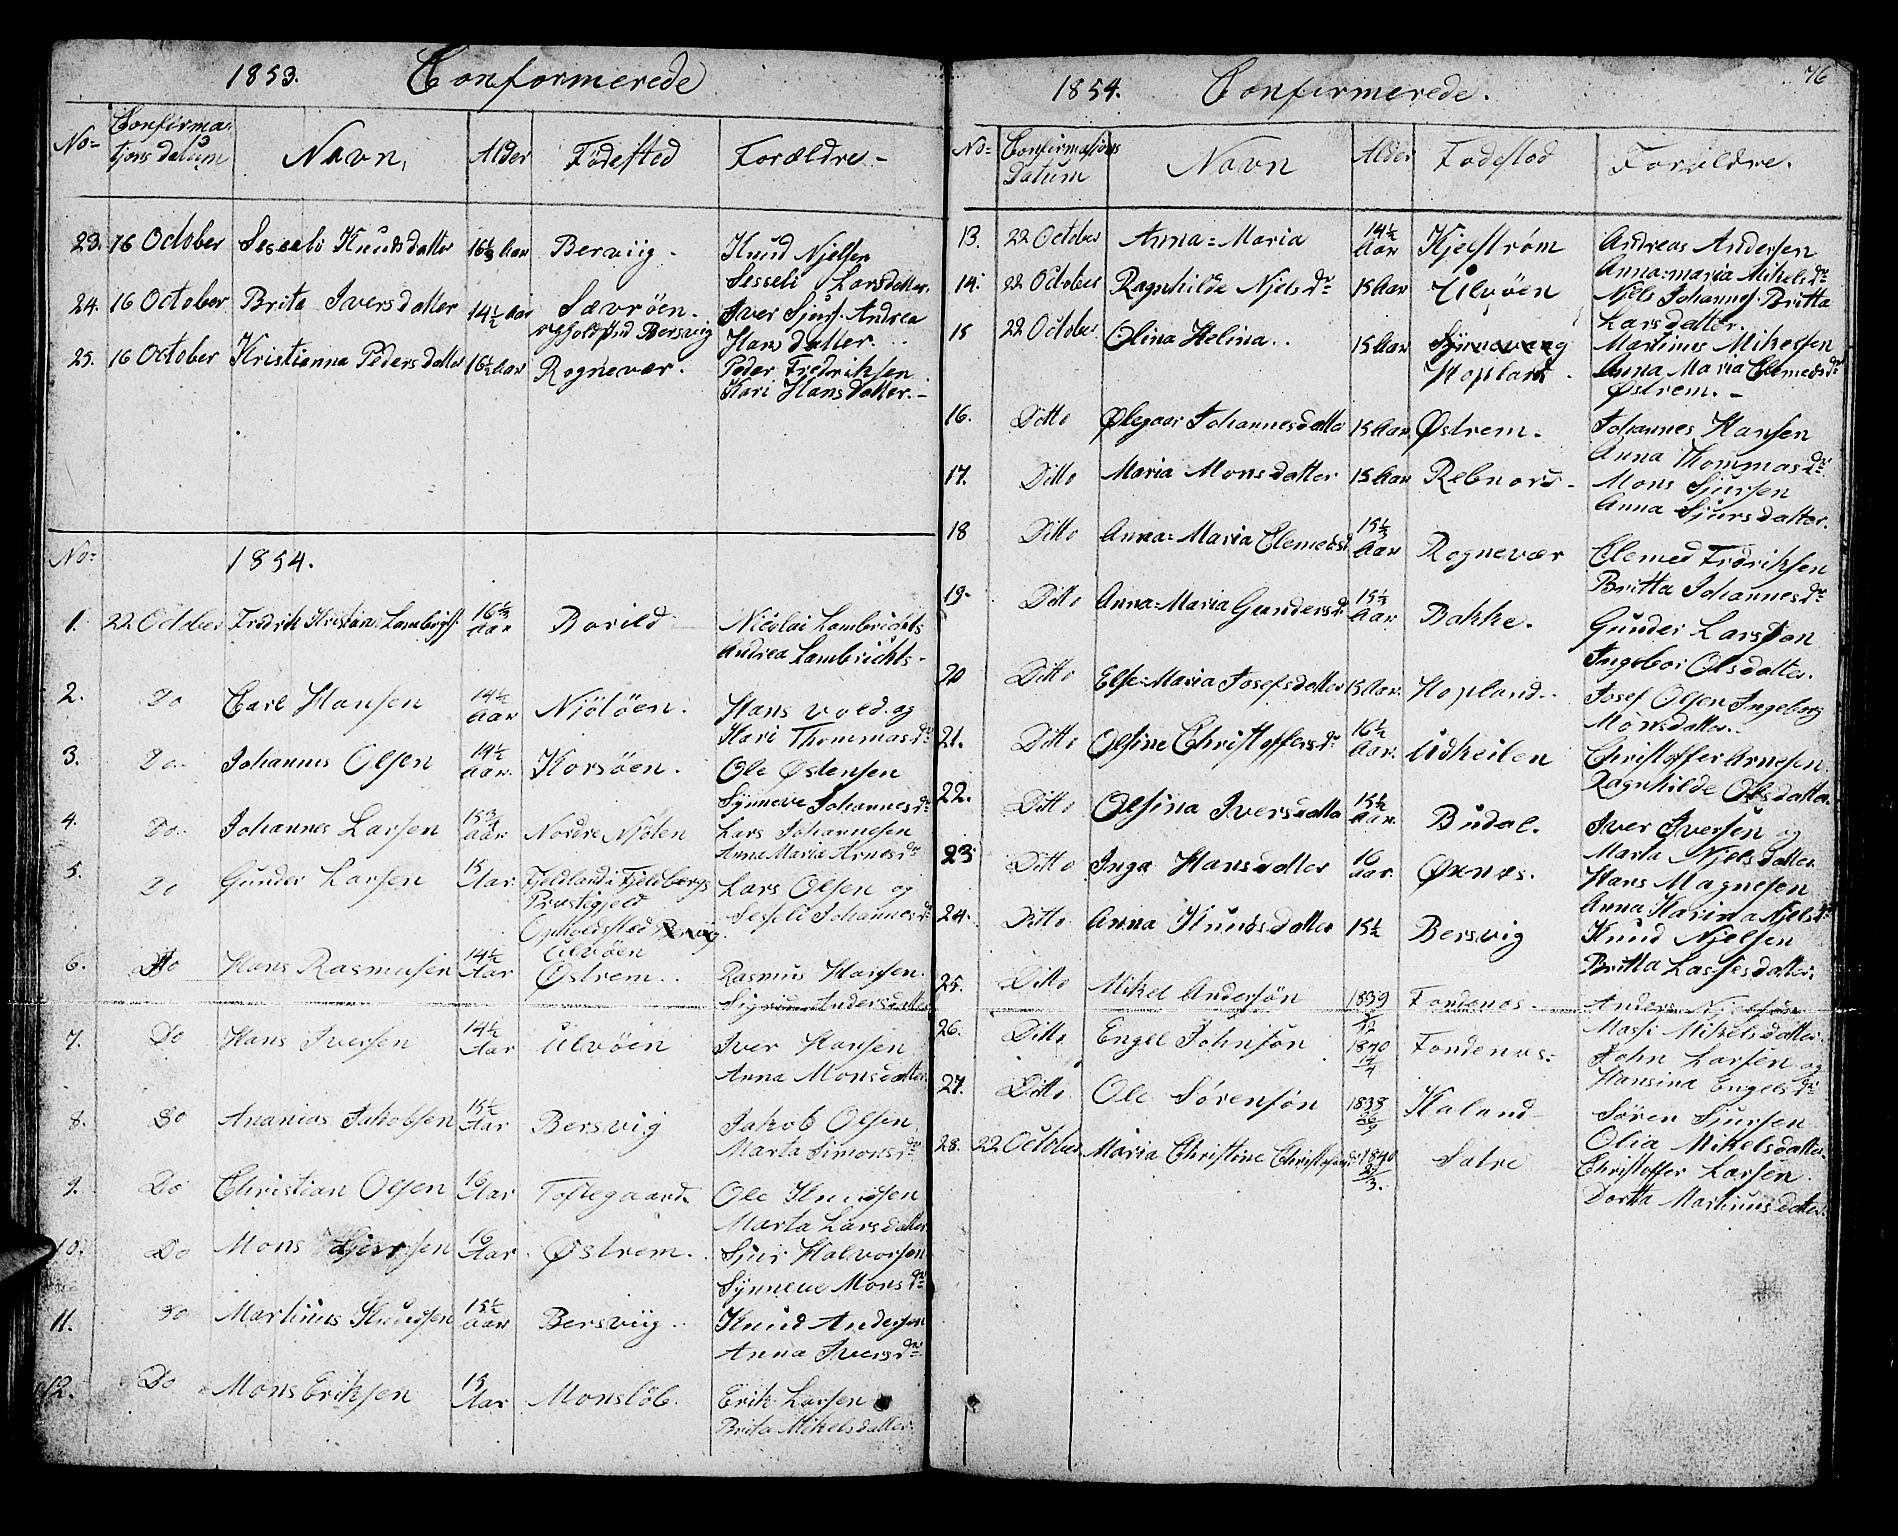 1853. Conformerede
No= Confirma- tjons datum Navn, Alder Födested Forældre-
23. 16 October Sesseli Knudsdatter 16⅓ Aar Berviig. Knud Njelsen
Sesseli Larsdatter.
24. 16 October Brita Iversdatter 14½ Aar Sævröen. Iver Sjurs. Andrea
Bersvig Hansdatter.
25. 16 October Kristianna Pedersdatter 16½ Aar Rognevær. Peder Fredriksen
Kari Hansdatter.-
No= 1854.
1. 22 October Fredrik Kristian 16⅓ Aar Borild Nicolai Lambrichts
Andrea Lambrichts-
2. Do Carl Hansen 14½ Aar Njölöen. Hans vold. og
Kari Thommasdr
3. Do. Johannes Olsen 14½ Aar. Korsöen. Ole Østensen
Synneve Johannesdr
4. Do. Johannes Larsen 15¾ Aar Nordre Njölen Lars Johannesen
Anna Maria Arnesdr
5. Do Gunder Larsen 15 Aar. Fjeldland i Fjelbergs Lars Olsen og
Præstegjeld Sesseli Johannesdr
Opholdssted
6. Do Hans Rasmusen 14½ Aar Ulvöen
Østrem.. Rasmus Hansen.
Andersdatter
7. Do Hans Iversen 14½ Aar Ulvöen Iver Hansen
Anna Monsdatter
8. Do Ananias Jakobsen 15½ Aar Bersvig Jakob Olsen.
Marta Simonsdr
9. Do Christian Olsen 16 Aar Toftegaard. Ole Knudsen
Marta Larsdatter
10. Do Mons 16 Aar. Østrem. Sjur Halvorsen
Synneve Monsdr
11. Do Martinus Knudsen 15½ Aar Bersviig. Knud Andersen
Anna Iversdr
12. Do Mons Eriksen 15 Aar Monslöb. Erik Larsen
Brita Mikelsdatter.
76
1854. Confirmerede.
No= Confirmations Datum Navn Alder Fødestod Forældre.
13. 22 October Anna=Maria 14½ Aar Kjelstrøm Andreas Andersen
Anna=maria Mikelsdr
14. 22 October Ragnhilde Njelsdr 15 Aar Ulvöen Njels Johannes. Britta
Larsdatter.
15 22 October Olina Helina.. 15 Aar Martinus Mikelsen
Hopland. Anna Maria Clemedsdr
Østrem.-
16. Ditto Ølegaar Johannesdatter 15 Aar Østrem. Johannes Hansen
Anna Thommasdr
17. Ditto Maria Monsdatter 15 Aar Rebnord- Mons Sjursen
Anna Sjursdatter.
18 Ditto Anna=Maria Clemedsd. 15⅓ Aar Rognevær Clemed Fredriksen
Britta Johannesdr
19- Ditto Anna=Maria Gundersd. 15⅓ Aar. Bakke. Gunder Larsson
Ingebor Olsdatter.
20 Ditto Else=Maria Josefsdatter 15 Aar. Hopland.. Josef Olsen Ingeborg
Monsdatter..
21. Ditto Olsine Christoffersdr 16½ Aar. Udheilen Christoffer Arnesen
Ragnhilde Olsdatter.
22. Ditto Olsina Iversdatter 15½ Aar. Budal. Iver Iversen og
Marta Njelsdatter
23. Ditto Inga Hansdatter 16 Aar. Øxnæs. Hans Magnesen
Anna Karina Njelsdr
24. Ditto Anna Knudsdatter 15½ Bersvig Knud Njelsen
Britta Lassesdatter.
25. Ditto Mikel Andersön 1839 Fondenes- Anders Njelsön
Massi Mikelsdatter.
26. Ditto Engel Johnsön 1840 Fondenæs= John Larsen og
Hansina Engelsdr
27. Ditto Ole Sörensön 1838 Kaland- Sören Sjursen
Olia Mikelsdatter
28. 22 October Maria Christine 1840 Sætre Christoffer Larsen.
Dortta Martinusdatter.